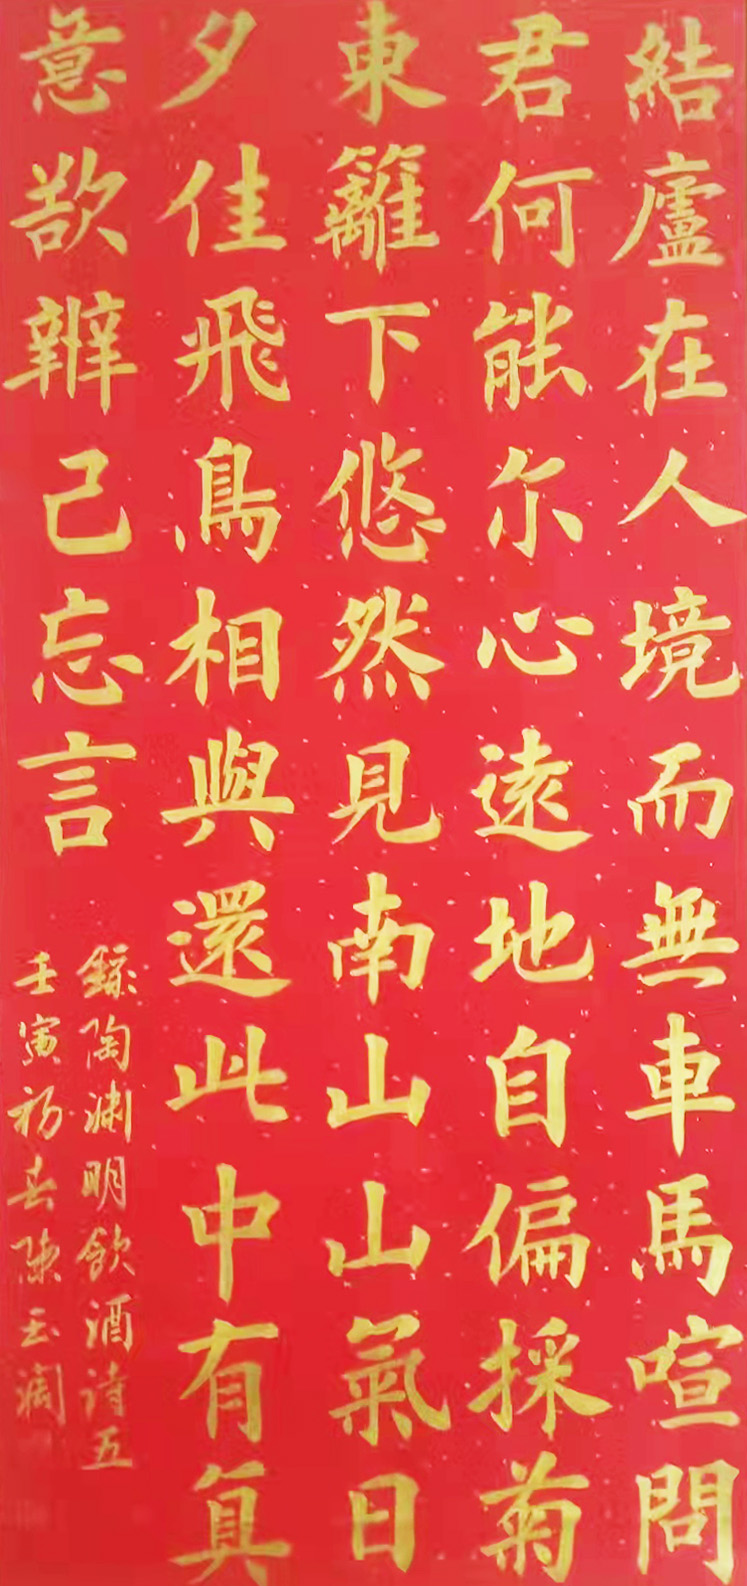 結廬在人境而無車馬喧問
君何能尔心遠地自偏採菊
東籬下悠然見南山山氣日
夕佳飛鳥相與還此中有真
意欲辨己忘言
錄陶淵明飲酒詩五
壬寅初春陳玉蘭